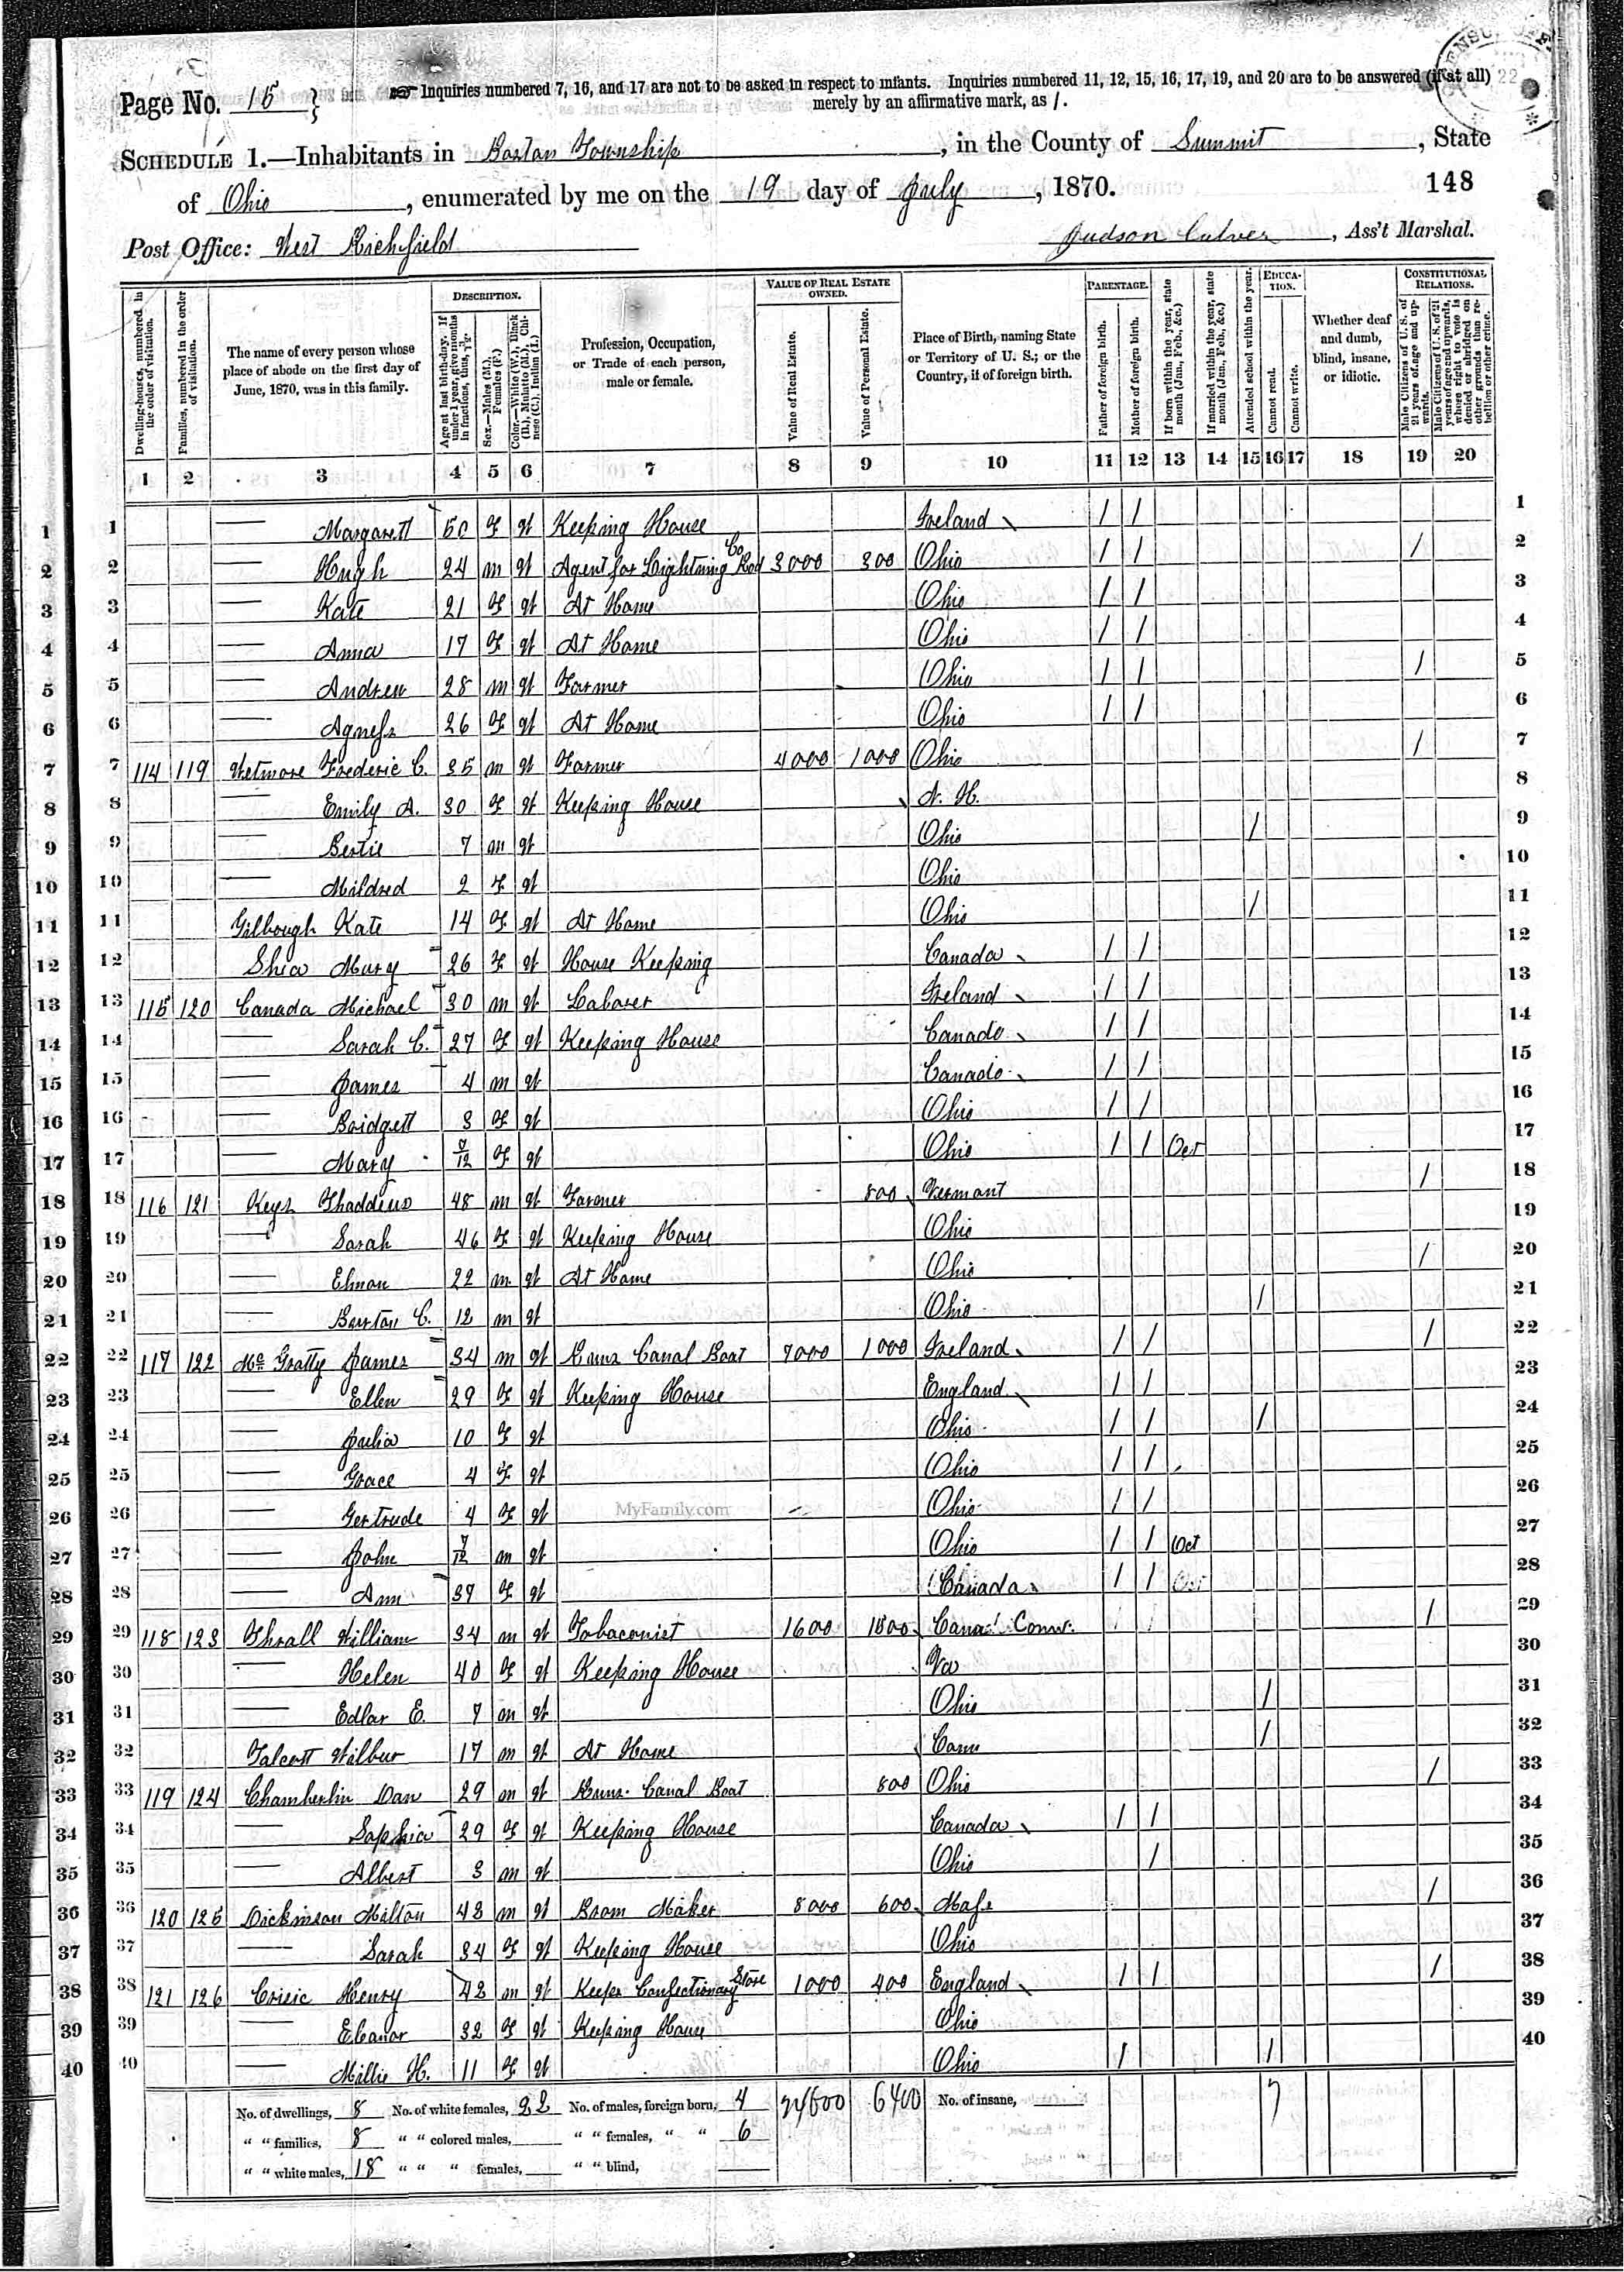 Page No. 15
Inquiries numbered 7, 16, and 17 are not to be asked in respect to infants. Inquiries numbered 11, 12, 15, 16, 17, 19, and 20 are to be answered (if at all)
merely by an affirmative mark, as /.
SCHEDULE 1.—Inhabitants in Boston Township, in the County of Summit, State
of Ohio, enumerated by me on the 19 day of July, 1870. 148
Post Office: West Richfield Judson Culver, Ass't Marshal.
Dwelling-houses, numbered in the order of visitation.
Families, numbered in the order of visitation.
The name of every person whose place of abode on the first day of June, 1870, was in this family.
DESCRIPTION.
Age at last birth-day. If under 1 year, give months in fractions, thus, 3/12.
Sex.—Males (M.), Females (F.)
Color.—White (W.), Black (B.), Mulatto (M.), Chinese (C.), Indian (I.)
Profession, Occupation, or Trade of each person, male or female.
VALUE OF REAL ESTATE OWNED.
Value of Real Estate.
Value of Personal Estate.
Place of Birth, naming State or Territory of U. S.; or the Country, if of foreign birth.
PARENTAGE.
Father of foreign birth.
Mother of foreign birth.
If born within the year, state month (Jan., Feb., &c.)
If married within the year, state month (Jan., Feb., &c.)
Attended school within the year.
EDUCATION.
Cannot read.
Cannot write.
Whether deaf and dumb, blind, insane, or idiotic.
CONSTITUTIONAL RELATIONS.
Male Citizens of U. S. of 21 years of age and upwards.
Male Citizens of U. S. of 21 years of age and upwards, where right to vote is denied or abridged on other grounds than rebellion or other crime.
1 2 3 4 5 6 7 8 9 10 11 12 13 14 15 16 17 18 19 20
1 — Margarett 50 F W Keeping House Ireland / / 1
2 — Hugh 24 m W Agent for Lightning Rod Co 3000 300 Ohio / / / 2
3 — Kate 21 F W At Home Ohio / / 3
4 — Anna 17 F W At Home Ohio / / 4
5 — Andrew 28 m W Farmer Ohio / / / 5
6 — Agness 26 F W At Home Ohio / / 6
7 114 119 Wetmore Frederic C. 35 m W Farmer 4000 1000 Ohio / 7
8 — Emily A. 30 F W Keeping House N. H. 8
9 — Bertie 7 m W Ohio / 9
10 — Mildred 2 F W Ohio 10
11 Gilbough Kate 14 F W At Home Ohio / 11
12 Shea Mary 26 F W House Keeping Canada / / 12
13 115 120 Canada Michael 30 m W Laborer Ireland / / 13
14 — Sarah C. 27 F W Keeping House Canada / / 14
15 — James 4 m W Canada / / 15
16 — Bridgett 3 F W Ohio / / 16
17 — Mary /12 F W Ohio / / Oct 17
18 116 121 Keys Thaddeus 48 m W Farmer 800 Vermont / 18
19 — Sarah 46 F W Keeping House Ohio 19
20 — Elmon 22 m W At Home Ohio / 20
21 — Burton C. 12 m W Ohio / 21
22 117 122 Mc Gratty James 34 m W Runs Canal Boat 7000 1000 Ireland / / / 22
23 — Ellen 29 F W Keeping House England / / 23
24 — Julia 10 F W Ohio / / / 24
25 — Grace 4 F W Ohio / / 25
26 — Gertrude 4 F W MyFamily.com Ohio / / 26
27 — John /12 m W Ohio / / Oct 27
28 — Ann 37 F W Canada / / 28
29 118 123 Thrall William 34 m W Tobaconist 1600 1800 Conn. / 29
30 — Helen 40 F W Keeping House Va 30
31 — Edlar E. 7 m W Ohio / 31
32 Talcott Wilbur 17 m W At Home Conn / 32
33 119 124 Chamberlin Dan 29 m W Runs Canal Boat 800 Ohio / 33
34 — Sophia 29 F W Keeping House Canada / / 34
35 — Albert 3 m W Ohio / 35
36 120 125 Dickinson Milton 43 m W Broom Maker 8000 600 Mass 36 /
37 — Sarah 34 F W Keeping House Ohio 37
38 121 126 Henry 42 m W Keeps Confectionary Store 1000 400 England / / / 38
39 — Eleanor 32 F W Keeping House Ohio 39
40 — Millie H. 11 F W Ohio / / 40
No. of dwellings, 8 No. of white females, 22 No. of males, foreign born, 4 24600 6400 No. of insane, 7
" " families, 8 " " colored males, " " females, " " 6
" " white males, 18 " " " females, " " blind,